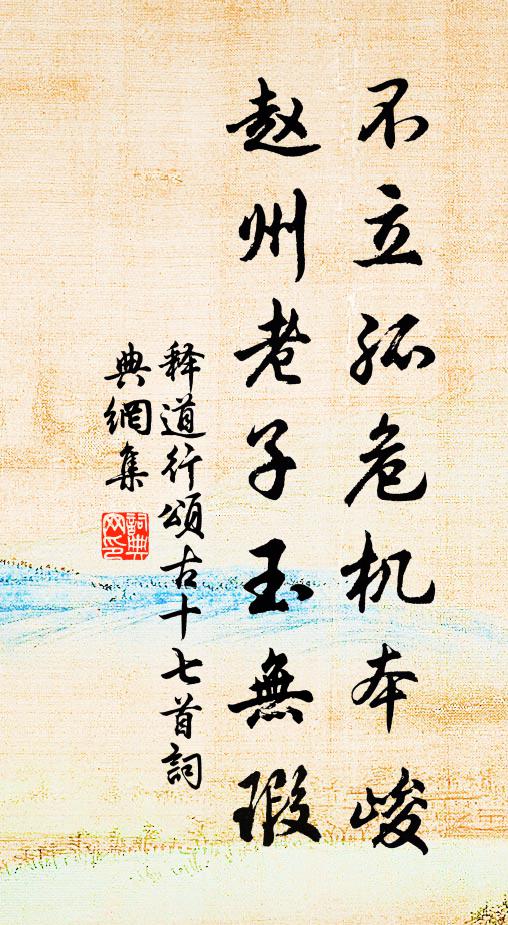 不立孤危机本峻
赵州老子玉無瑕
释道行頌古十七首詞
典網集
詞典
网印